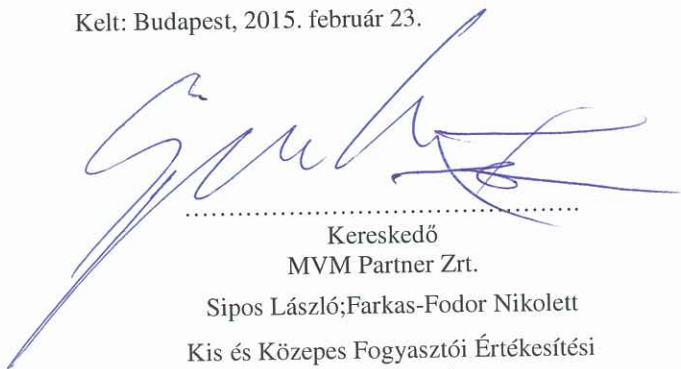 Kelt: Budapest, 2015. február 23.
........................................................
Kereskedő
MVM Partner Zrt.
Sipos László;Farkas-Fodor Nikolett
Kis és Közepes Fogyasztói Értékesítési